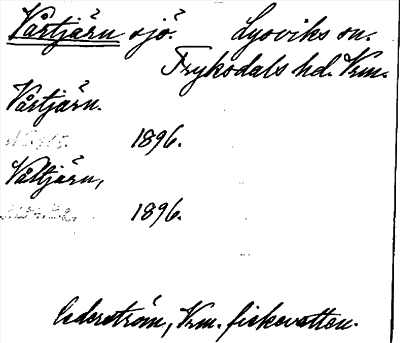 Vårtjärn sjö. Lysviks sn.
Fryksdals hd. Vrm.
Vårtjärn.
1896.
Valtjärn,
1896.
Cederström, Vrm. fiskevatten.